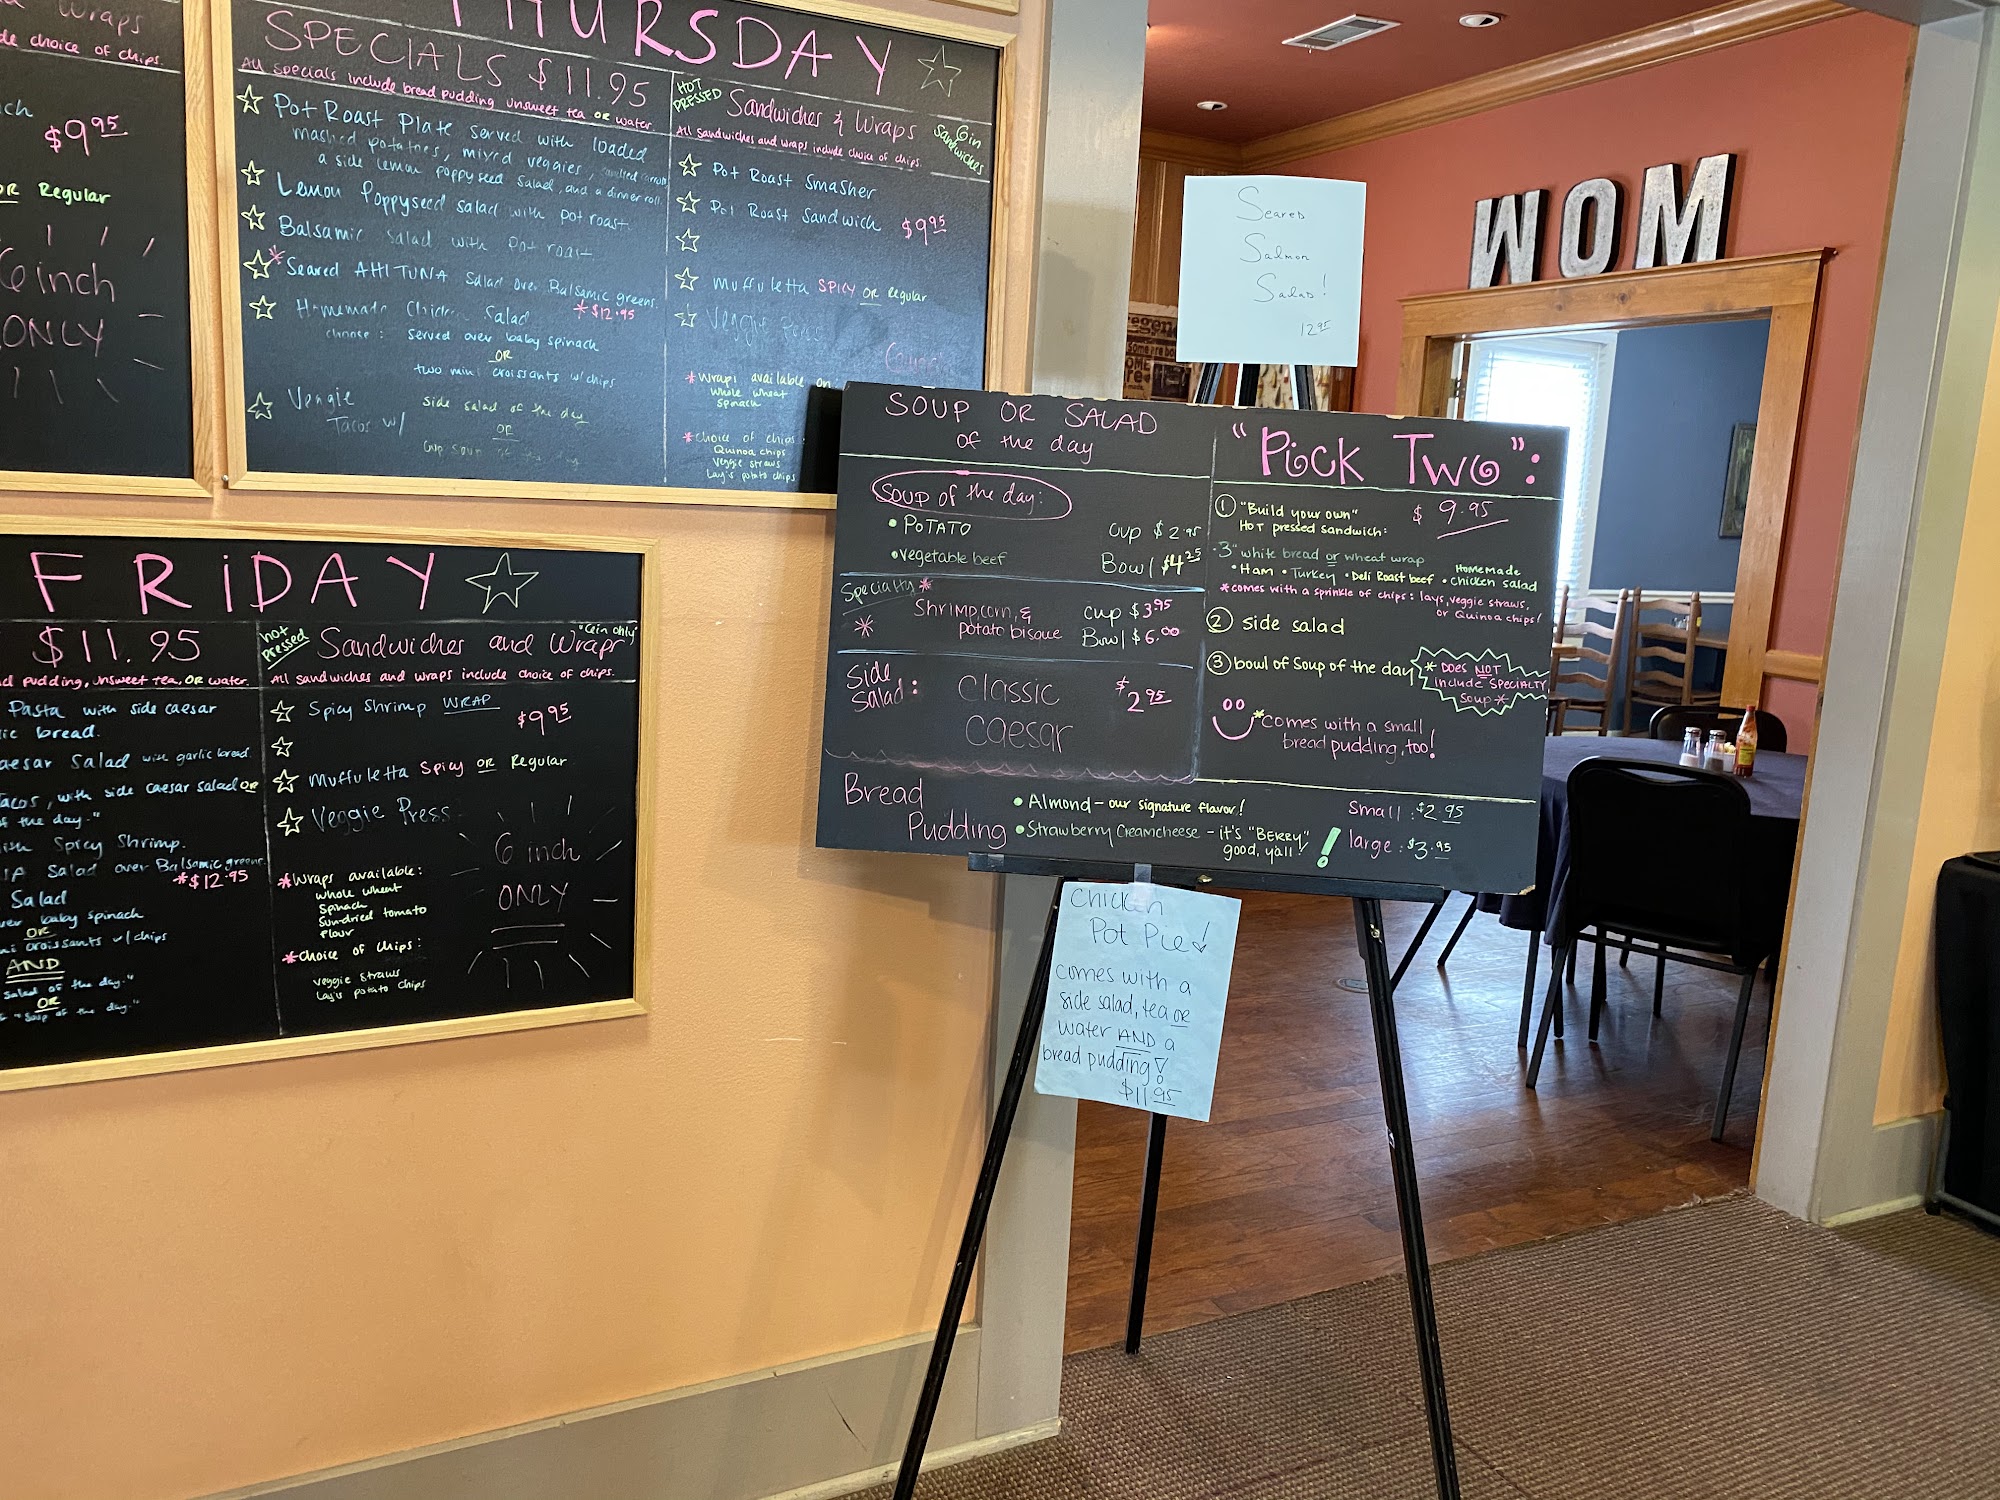 Wraps
de choice of chips.
$9.95
OR Regular
6 inch
ONLY
THURSDAY
SPECIALS $11.95
All specials include bread pudding unsweet tea OR water.
Pot Roast Plate served with loaded
mashed potatoes, mixed veggies,
a side lemon poppyseed salad, and a dinner roll.
Lemon Poppyseed salad with pot roast
Balsamic salad with pot roast
*Seared AHI TUNA salad over Balsamic greens.
*$12.95
Homemade Chicken Salad
choose: served over baby spinach
OR
two mini croissants w/chips
Veggie
Tacos w/
side salad of the day
OR
Cup soup of the day
HOT PRESSED
Sandwiches & Wraps
6in
Sandwiches
All sandwiches and wraps include choice of chips.
Pot Roast Smasher
Pot Roast Sandwich $9.95
Muffuletta SPICY OR Regular
Veggie Press
*Wraps available on
whole wheat
spinach
*Choice of chips:
Quinoa chips
Veggie straws
Lay's potato chips
FRIDAY
$11.95
d pudding, unsweet tea, OR water.
Pasta with side caesar
ic bread.
aesar Salad with garlic bread.
Tacos, with side caesar salad OR
f the day."
ish Spicy Shrimp.
IA Salad over Balsamic greens.
*$12.95
Salad
ver baby spinach
OR
ni croissants w/chips
AND
salad of the day."
OR
"Soup of the day."
hot pressed
Sandwiches and Wraps
"6in only"
All sandwiches and wraps include choice of chips.
Spicy Shrimp WRAP
$9.95
Muffuletta Spicy OR Regular
Veggie Press
6 inch
ONLY
*Wraps available:
Whole wheat
Spinach
Sundried tomato
Flour
*Choice of chips:
veggie straws
Lay's potato chips
Seared
Salmon
Salad!
12.95
SOUP OR SALAD
of the day
Soup of the day:
• POTATO
• vegetable beef
cup $2.95
Bowl $4.25
Specialty *
* Shrimp, corn, &
potato bisque
cup $3.95
Bowl $6.00
Side
Salad:
Classic
Caesar
$2.95
"Pick Two":
① "Build your own"
Hot pressed sandwich:
$9.95
·3" white bread or wheat wrap
• Ham • Turkey • Deli Roast beef • Homemade chicken salad
*comes with a sprinkle of chips: lays, veggie straws,
or Quinoa chips!
② side salad
③ bowl of soup of the day
* Does NOT
include SPECIALTY
Soup *
*Comes with a small
bread pudding, too!
Bread
Pudding
• Almond - our signature flavor!
• Strawberry Creamcheese - it's "BERRY"
good, y'all!
Small: $2.95
large: $3.95
Chicken
Pot Pie!
comes with a
side salad, tea OR
water AND a
bread pudding!
$11.95
WOM